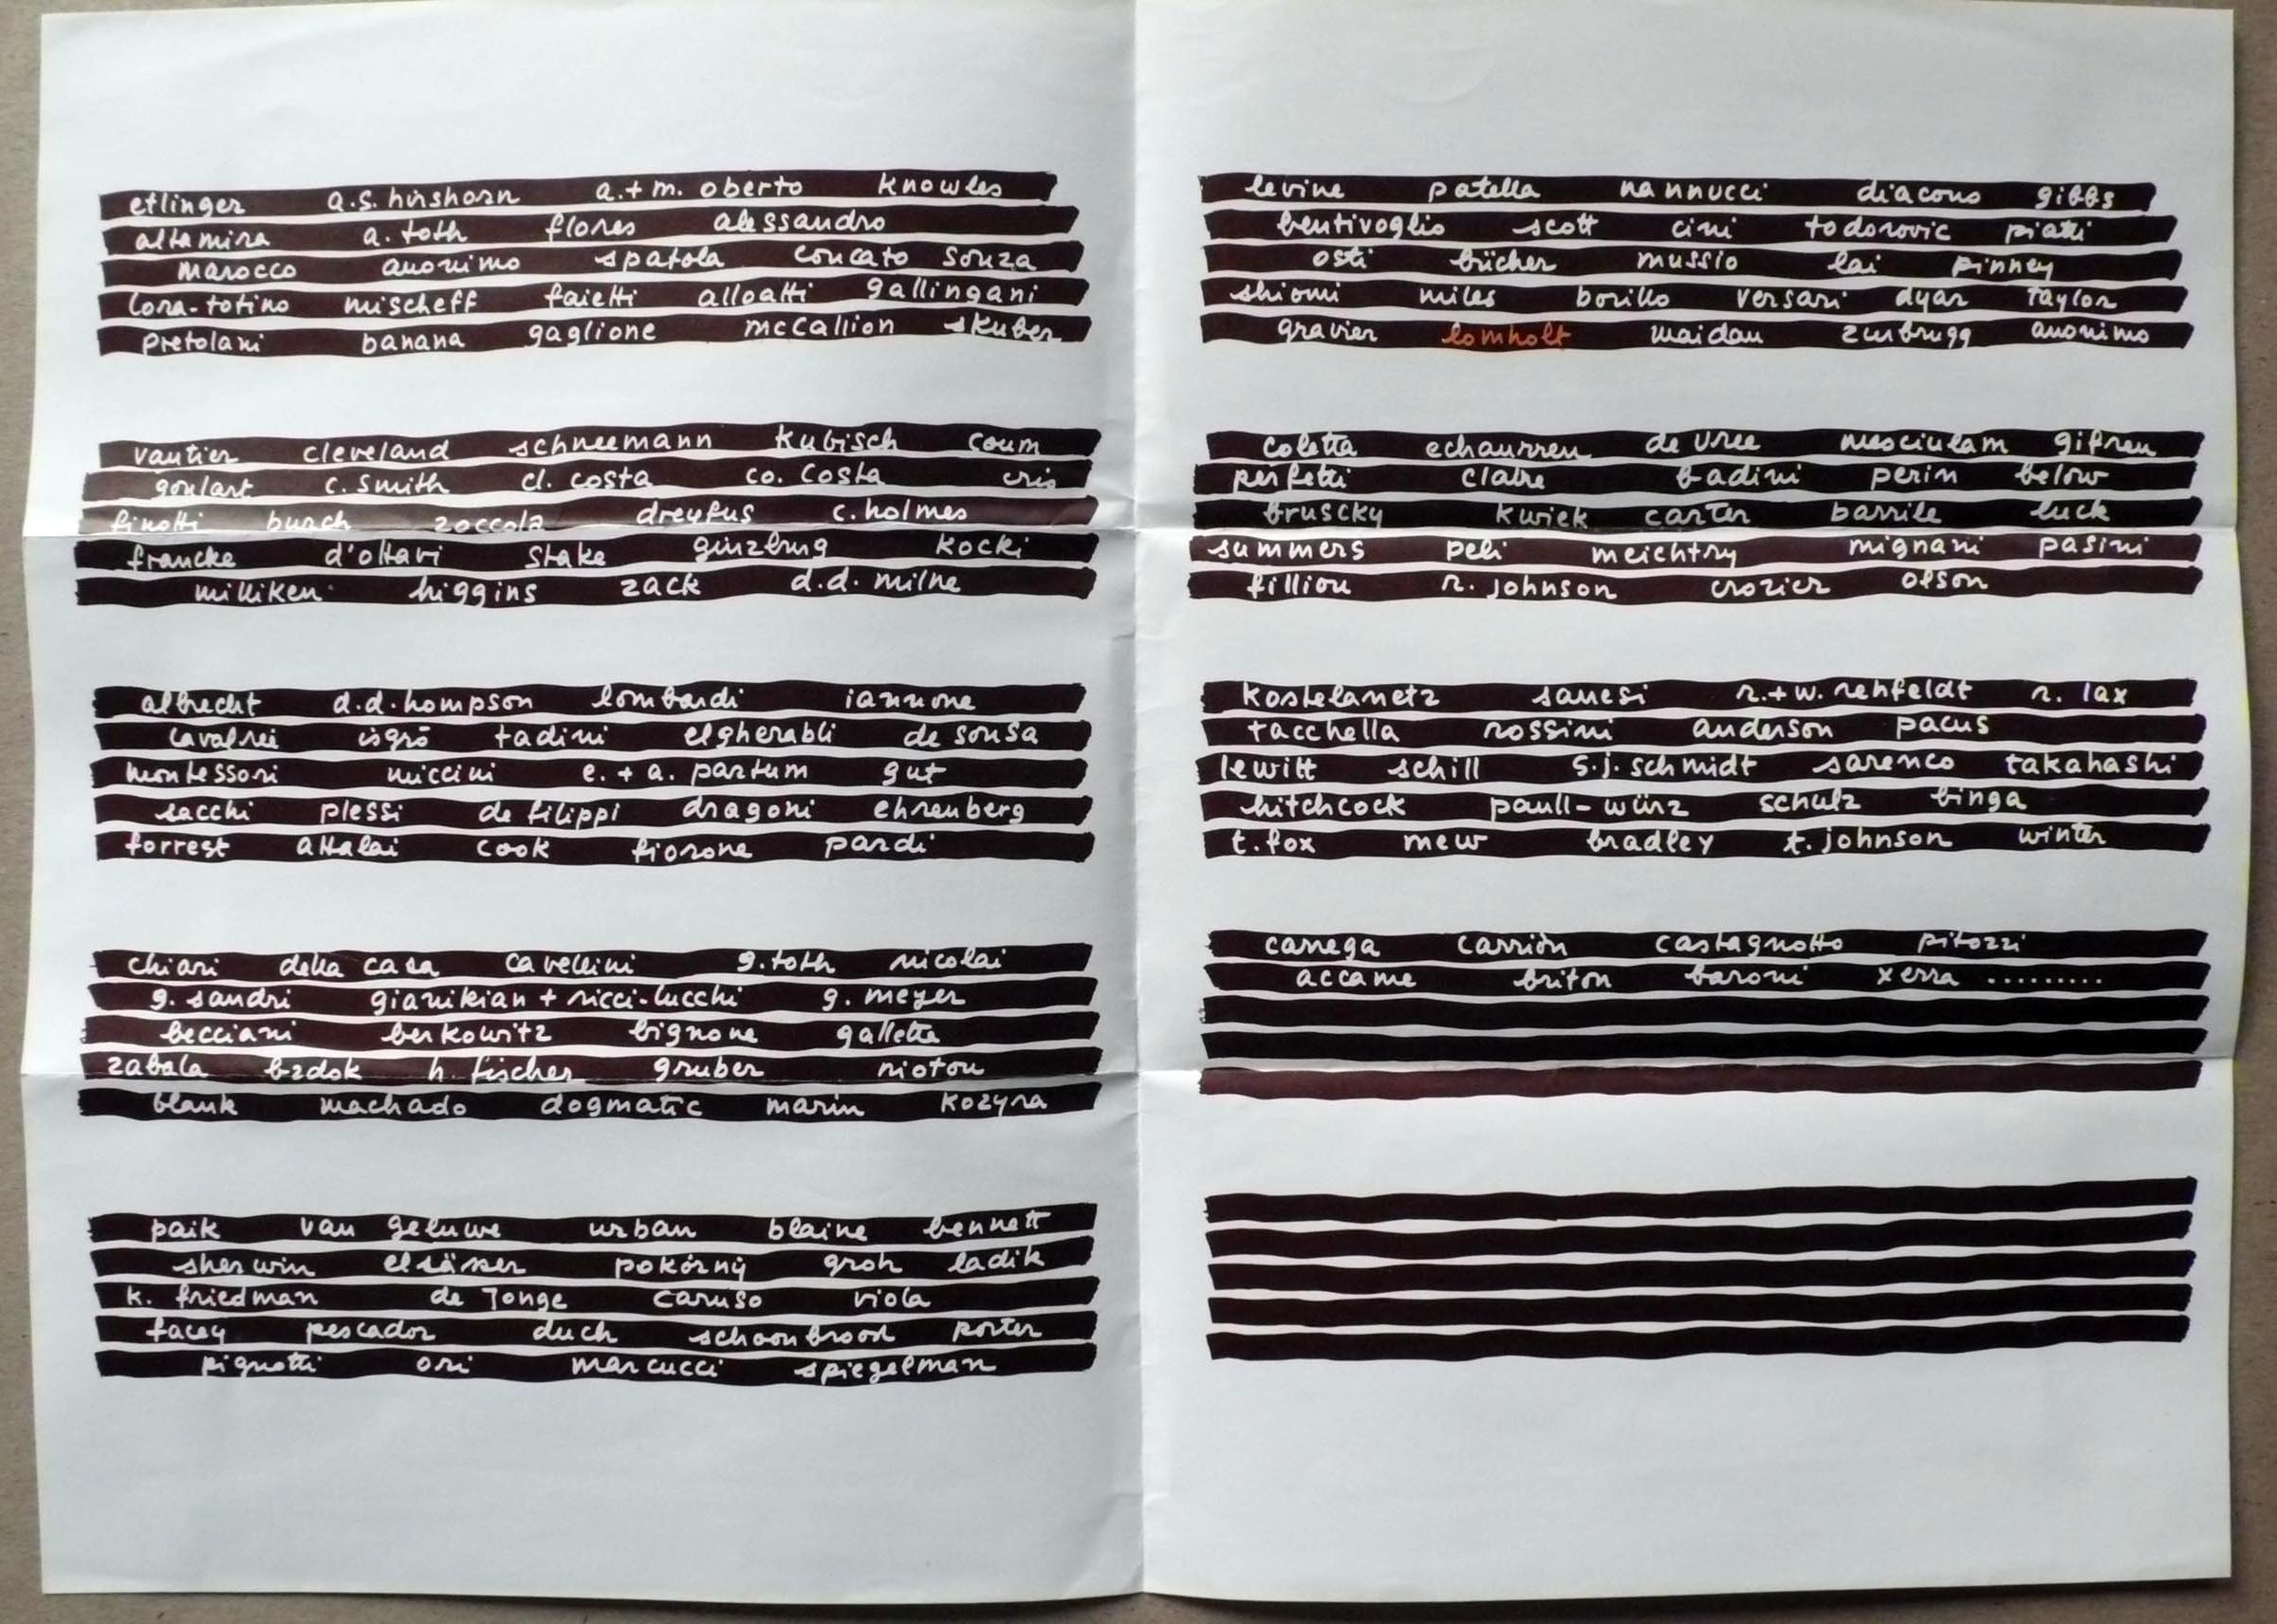 etlinger a.s. hirshorn a.+m. oberto knowles
altamira a. toth flores alessandro
marocco anonimo spatola concato souza
lora-totino mischeff faietti alloatti gallingani
pretolani banana gaglione mcCallion skuber
vautier cleveland schneemann kubisch coum
goulart c. smith cl. costa co. costa cris
finotti buach zoccola dreyfus c. holmes
francke d'ottavi stake ginzbrug kocki
milliken higgins zack d.d. milne
albrecht d.d. hompson lombardi iannone
cavalrei isgrò tadini elgherabli de sousa
montessori miccini e. + a. partum gut
sacchi plessi de filippi dragoni ehrenberg
forrest attalai cook fiorone pardi
chiari della casa cavellini g. toth nicolai
g. sandri gianikian + ricci-lucchi g. meyer
becciani berkowitz bignone galletta
zabala bzdok h. fischer gruber niotou
blank machado dogmatic marin kozyra
paik van geluwe urban blaine bennett
sherwin elsässer pokórný groh ladik
k. friedman de Jonge caruso viola
facey pescador duch schoonbrood porter
pignotti ori marcucci spiegelman
levine patella nannucci diacono gibbs
bentivoglio scott cini todorovic piatti
osti bücher mussio lai pinney
shiomi miles borillo versari dyar taylor
gravier lomholt maidan zurbrugg anonimo
coletta echaurren de vree mesciulam gifreu
perfetti claire badini perin below
bruscky kwiek carter barrile luck
summers peli meichtry mignani pasini
filliou r. johnson crozier olson
kostelanetz sanesi r.+w. rehfeldt r. lax
tacchella rossini anderson pacus
lewitt schill s.j. schmidt sarenco takahashi
hitchcock paull-würz schulz binga
t. fox mew bradley t. johnson winter
carrega carriòn castagnotto pitozzi
accame briton baroni xerra .........